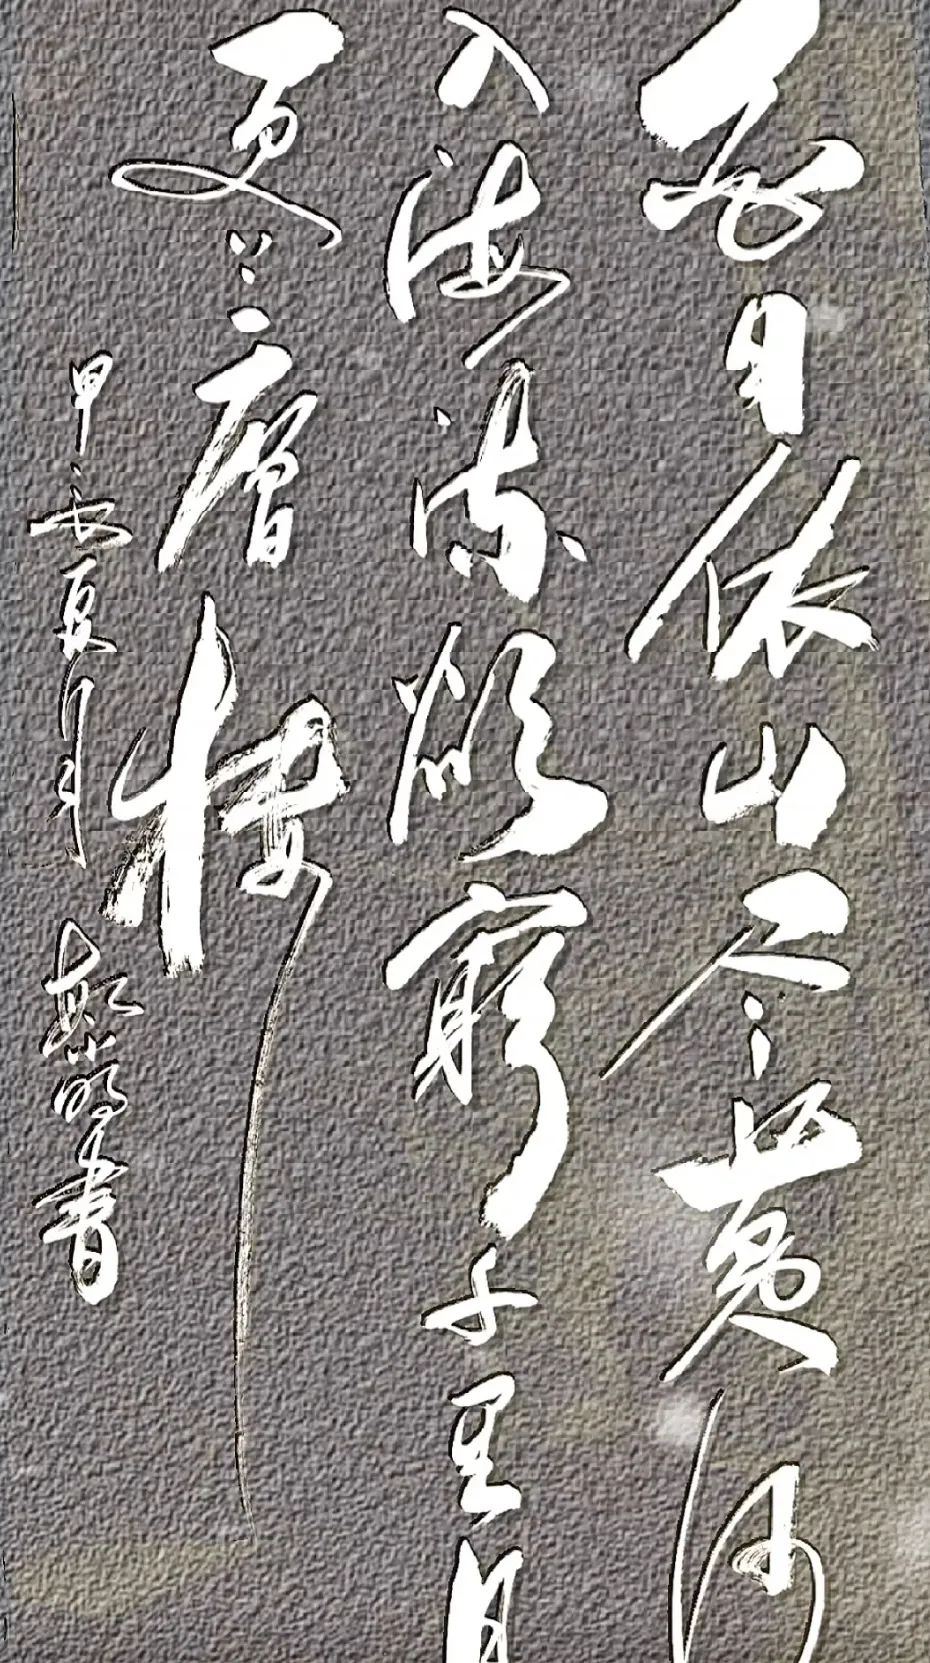 白日依山尽黄河
入海流欲窮千里目
更上一層樓
甲夏月
書